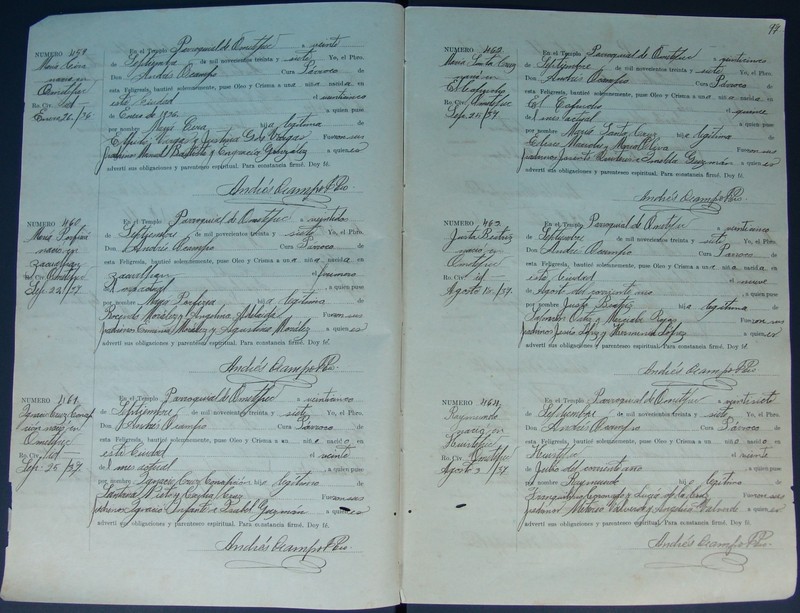 NUMERO 459
Maria Cira
nació en
Ometepec
Ro. Civ. Id
Enero 26/36
En el Templo Parroquial de Ometepec a veinte
de Septiembre de mil novecientos treinta y siete Yo, el Pbro.
Don Andrés Ocampo Cura Párroco
de esta Feligresía, bauticé solemnemente, puse Oleo y Crisma a una niña nacida en
esta Ciudad el
de Enero de 1936 , a quien puse
por nombre hija legítima de
Fueron sus
padrinos Manuel Bautista y Engracia González , a quienes
advertí sus obligaciones y parentesco espiritual. Para constancia firmé. Doy fé.
Andrés Ocampo P. Pio.
NUMERO 460
Maria Porfiria
nació en
Ro. Civ. Ometepec
Sep. 22/37
En el Templo Parroquial de Ometepec a veintidos
de Septiembre de mil novecientos treinta y siete Yo, el Pbro.
Don Andrés Ocampo Cura Párroco
de esta Feligresía, bauticé solemnemente, puse Oleo y Crisma a una niña nacida en
el primero
, a quien puse
por nombre Maria Porfiria hija legítima de
Morález y Angelina Adelaida Fueron sus
padrinos Morález y Agustina Moráles , a quienes
advertí sus obligaciones y parentesco espiritual. Para constancia firmé. Doy fé.
Andrés Ocampo P. Pio.
NUMERO 461
Ignacio Cruz Concep
ción nació en
Ometepec
Ro. Civ. Id
Sep. 25/37
En el Templo Parroquial de Ometepec a veinticinco
de Septiembre de mil novecientos treinta y siete Yo, el Pbro.
Don Andrés Ocampo Cura Párroco
de esta Feligresía, bauticé solemnemente, puse Oleo y Crisma a un niño nacido en
esta Ciudad el veinte
del mes actual , a quien puse
por nombre Ignacio Cruz Concepción hijo legítimo de
Santana Nieto y Cecilia Cruz Fueron sus
padrinos Ignacio Infante e Isabel Guzmán , a quienes
advertí sus obligaciones y parentesco espiritual. Para constancia firmé. Doy fé.
Andrés Ocampo P. Pio.
99
NUMERO 462
Maria Santa Cruz
nació en
El Capincho
Ro. Civ. Ometepec
Sep. 24/37
En el Templo Parroquial de Ometepec a veinticinco
de Septiembre de mil novecientos treinta y siete Yo, el Pbro.
Don Andrés Ocampo Cura Párroco
de esta Feligresía, bauticé solemnemente, puse Oleo y Crisma a una niña nacida en
El Capincho el quince
del mes actual , a quien puse
por nombre Maria Santa Cruz hija legítima de
y Maria Oliva Fueron sus
padrinos Guzmán , a quienes
advertí sus obligaciones y parentesco espiritual. Para constancia firmé. Doy fé.
Andrés Ocampo P. Pio.
NUMERO 463
Justa Beatriz
nació en
Ometepec
Ro. Civ. id
Agosto 12/37.
En el Templo Parroquial de Ometepec a veinticinco
de Septiembre de mil novecientos treinta y siete Yo, el Pbro.
Don Andrés Ocampo Cura Párroco
de esta Feligresía, bauticé solemnemente, puse Oleo y Crisma a una niña nacida en
esta Ciudad el nueve
de Agosto del corriente año , a quien puse
por nombre Justa Beatriz hija legítima de
Ortiz y Mercedes Rojas Fueron sus
padrinos López y Herminia López , a quienes
advertí sus obligaciones y parentesco espiritual. Para constancia firmé. Doy fé.
Andrés Ocampo P. Pio.
NUMERO 464
Raymundo
nació en
Huistepec
Ro. Civ. Ometepec
Agosto 3/37.
En el Templo Parroquial de Ometepec a veintisiete
de Septiembre de mil novecientos treinta y siete Yo, el Pbro.
Don Andrés Ocampo Cura Párroco
de esta Feligresía, bauticé solemnemente, puse Oleo y Crisma a un niño nacido en
Huistepec el veinte
de Julio del corriente año , a quien puse
por nombre Raymundo hijo legítimo de
y Lucía de la Cruz Fueron sus
padrinos Valverde y Valverde , a quienes
advertí sus obligaciones y parentesco espiritual. Para constancia firmé. Doy fé.
Andrés Ocampo P. Pio.